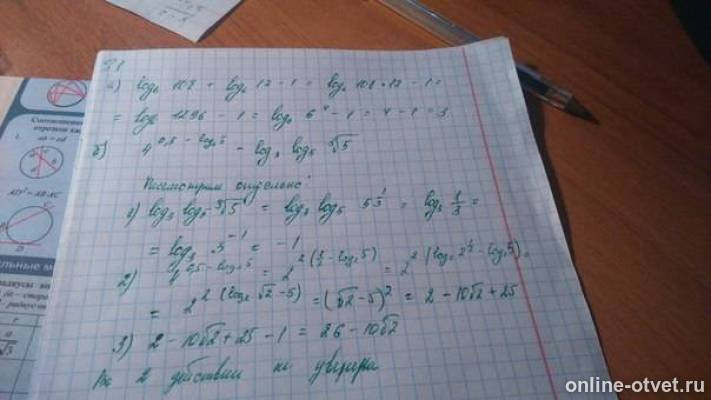 а) log₆ 108 + log₆ 12 - 1 = log₆ 108 * 12 - 1 =
= log₆ 1296 - 1 = log₆ 6⁴ - 1 = 4 - 1 = 3
б) 4^(0,5 - log₂5) - log₃ log₅ ∛5
Рассмотрим отдельно:
1) log₃ log₅ ∛5 = log₃ log₅ 5^(1/3) = log₃ 1/3 =
= log₃ 3⁻¹ = -1
2) 4^(0,5 - log₂5) = 2^(2(1/2 - log₂5)) = 2^(2(log₂2^(1/2) - log₂5)) =
= 2^(2(log₂ √2 - 5)) = (√2 - 5)² = 2 - 10√2 + 25
3) 2 - 10√2 + 25 - 1 = 26 - 10√2
Во 2 действии не уверена
Соотношение
отрезков
1.
a
√3
online-otvet.ru